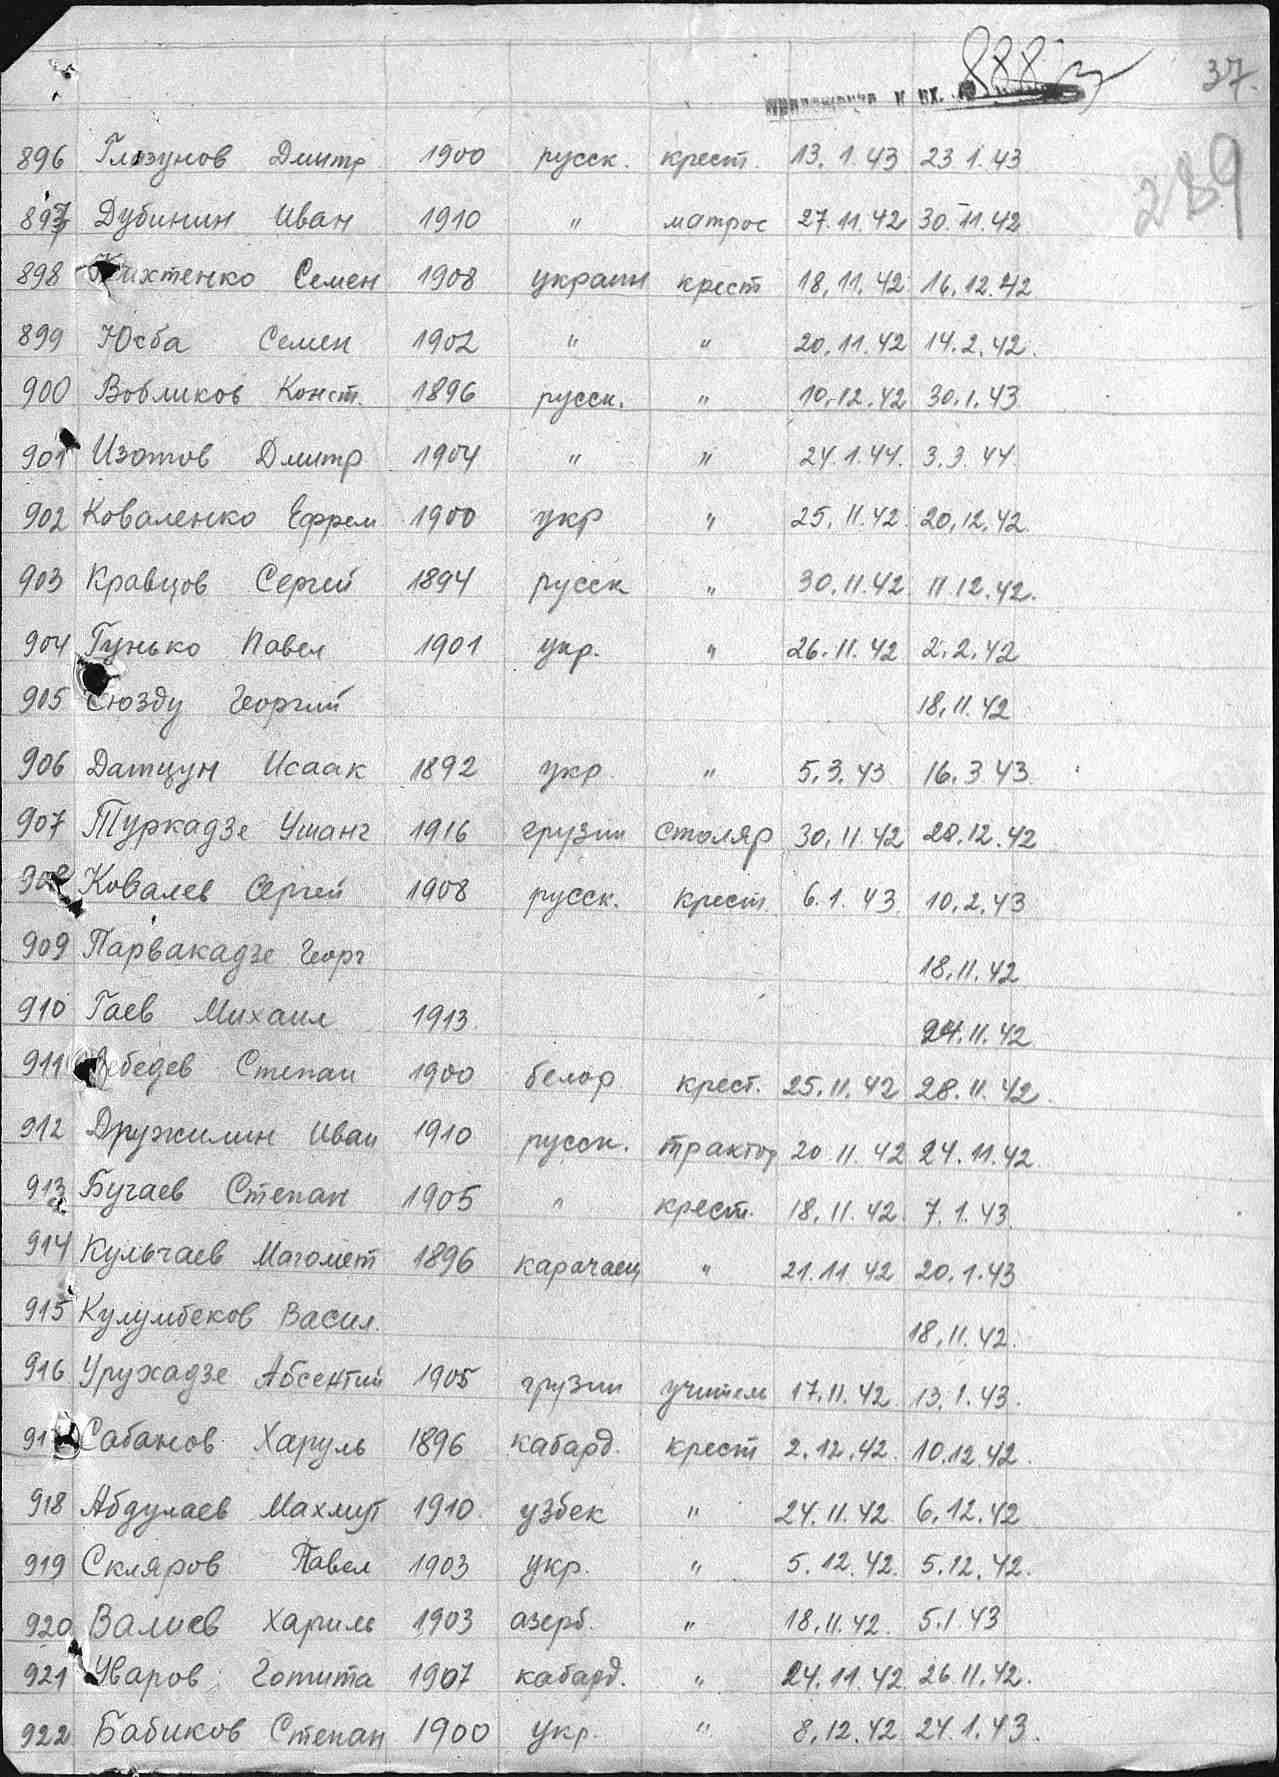 888
37
к вх.
289
896 Глазунов Дмитр 1900 русск. крест. 13.1.43 23.1.43
897 Дубинин Иван 1910 " матрос 27.11.42 30.11.42
898 Семен 1908 украин крест 18.11.42 16.12.42
899 Юсба Семен 1902 " " 20.11.42 14.2.42.
900 Вобликов Конст. 1896 русск. " 10.12.42 30.1.43
901 Изотов Дмитр 1904 " " 24.1.44. 3.3.44
902 Коваленко Ефрем 1900 укр " 25.11.42. 20.12.42.
903 Кравцов Сергей 1894 русск " 30.11.42. 11.12.42.
904 Гунько Павел 1901 укр. " 26.11.42 2.2.42
905 Сюзду Георгий 18.11.42
906 Датцун Исаак 1892 укр " 5.3.43 16.3.43.
907 Туркадзе Ушанг 1916 грузин столяр 30.11.42 20.12.42
908 Ковалев Сергей 1908 русск. крест. 6.1.43. 10.2.43
909 Парвакадзе Георг 18.11.42
910 Гаев Михаил 1913. 24.11.42
911 Лебедев Степан 1900 белор крест. 25.11.42 28.11.42.
912 Дружилин Иван 1910 русск. трактор 20.11.42 24.11.42.
913 Бучаев Степан 1905 " крест. 18.11.42. 7.1.43.
914 Кульчаев Магомет 1896 карачаец " 21.11.42 20.1.43
915 Кулумбеков Васил. 18.11.42.
916 Уружадзе Абсентий 1905 грузин учител 17.11.42. 13.1.43.
917 Сабанов Харуль 1896 кабард. крест 2.12.42. 10.12.42.
918 Абдулаев Махмут 1910. узбек " 24.11.42. 6.12.42
919 Скляров Павел 1903 укр. " 5.12.42. 5.12.42.
920 Валиев Хариль 1903 азерб. " 18.11.42. 5.1.43
921 Уваров Готита 1907 кабард. " 24.11.42. 26.11.42.
922 Бабиков Степан 1900 укр. " 8.12.42 24.1.43.